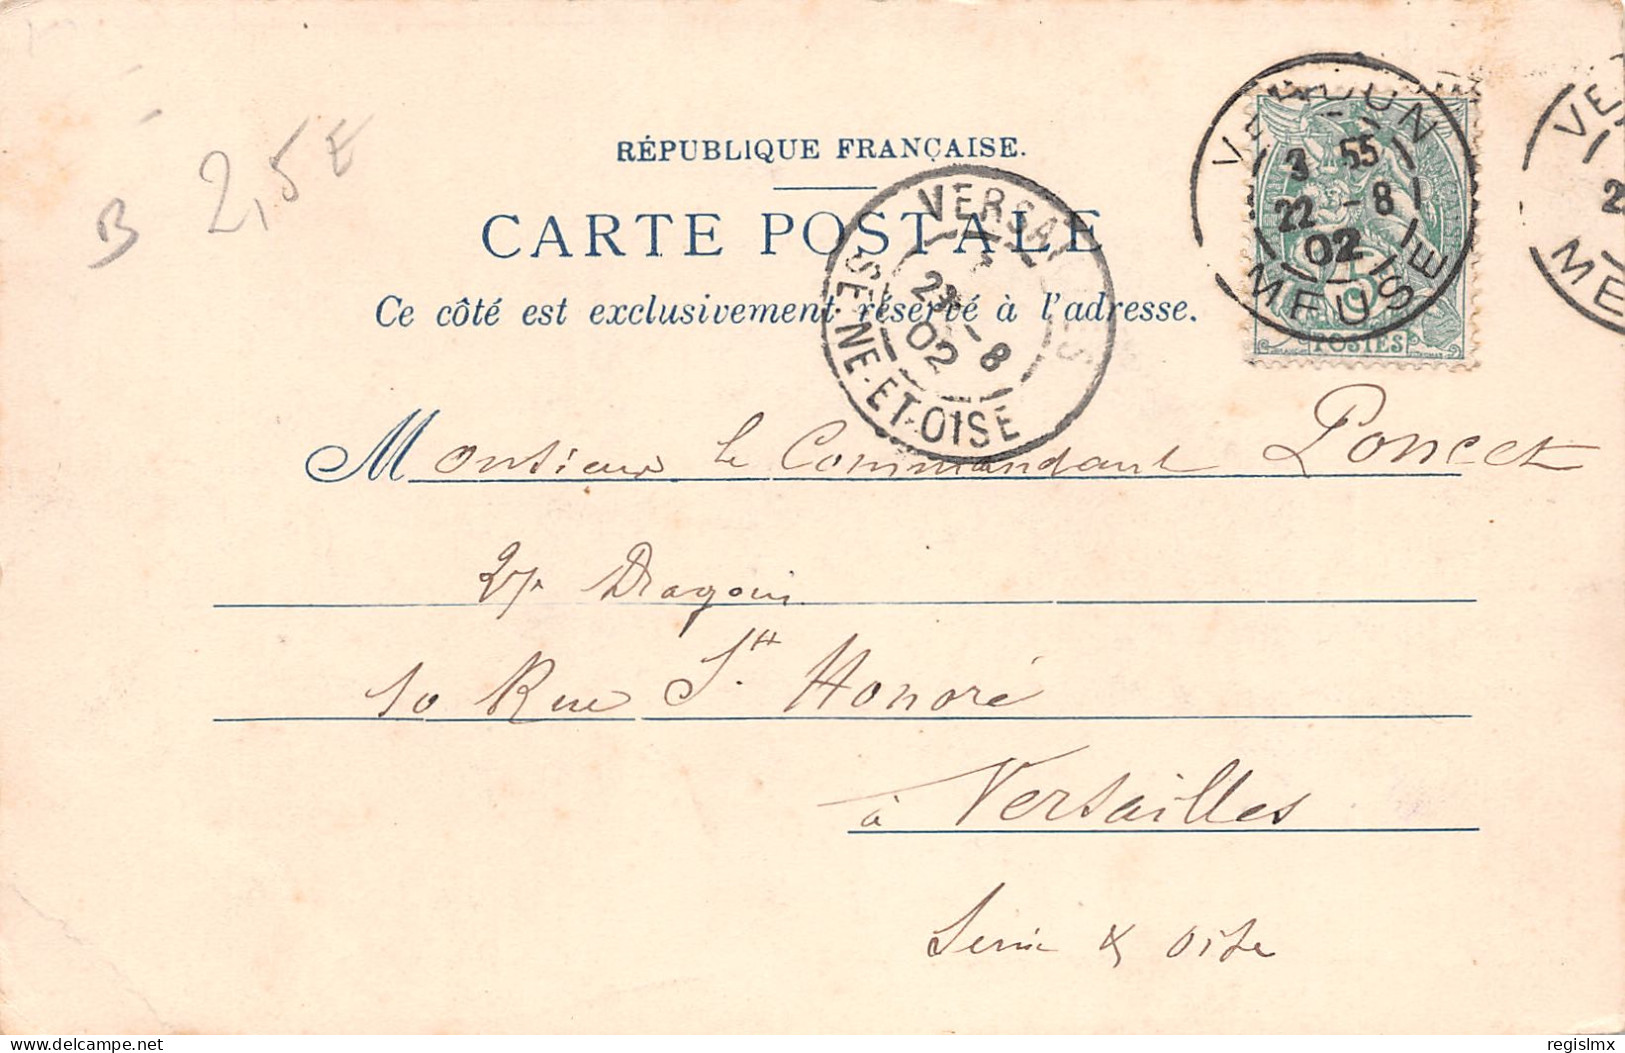 B 2,5 E
RÉPUBLIQUE FRANÇAISE.
CARTE POSTALE
Ce côté est exclusivement réservé à l'adresse.
VERDUN
3 55
22 - 8
02
MEUSE
POSTES
VE
2
ME
VERSAILLES
23 - 8
02
SEINE-ET-OISE
Monsieur le Commandant Poncet
27e Dragons
10 Rue St. Honoré
à Versailles
Seine & Oise
delcampe.net
regislmx